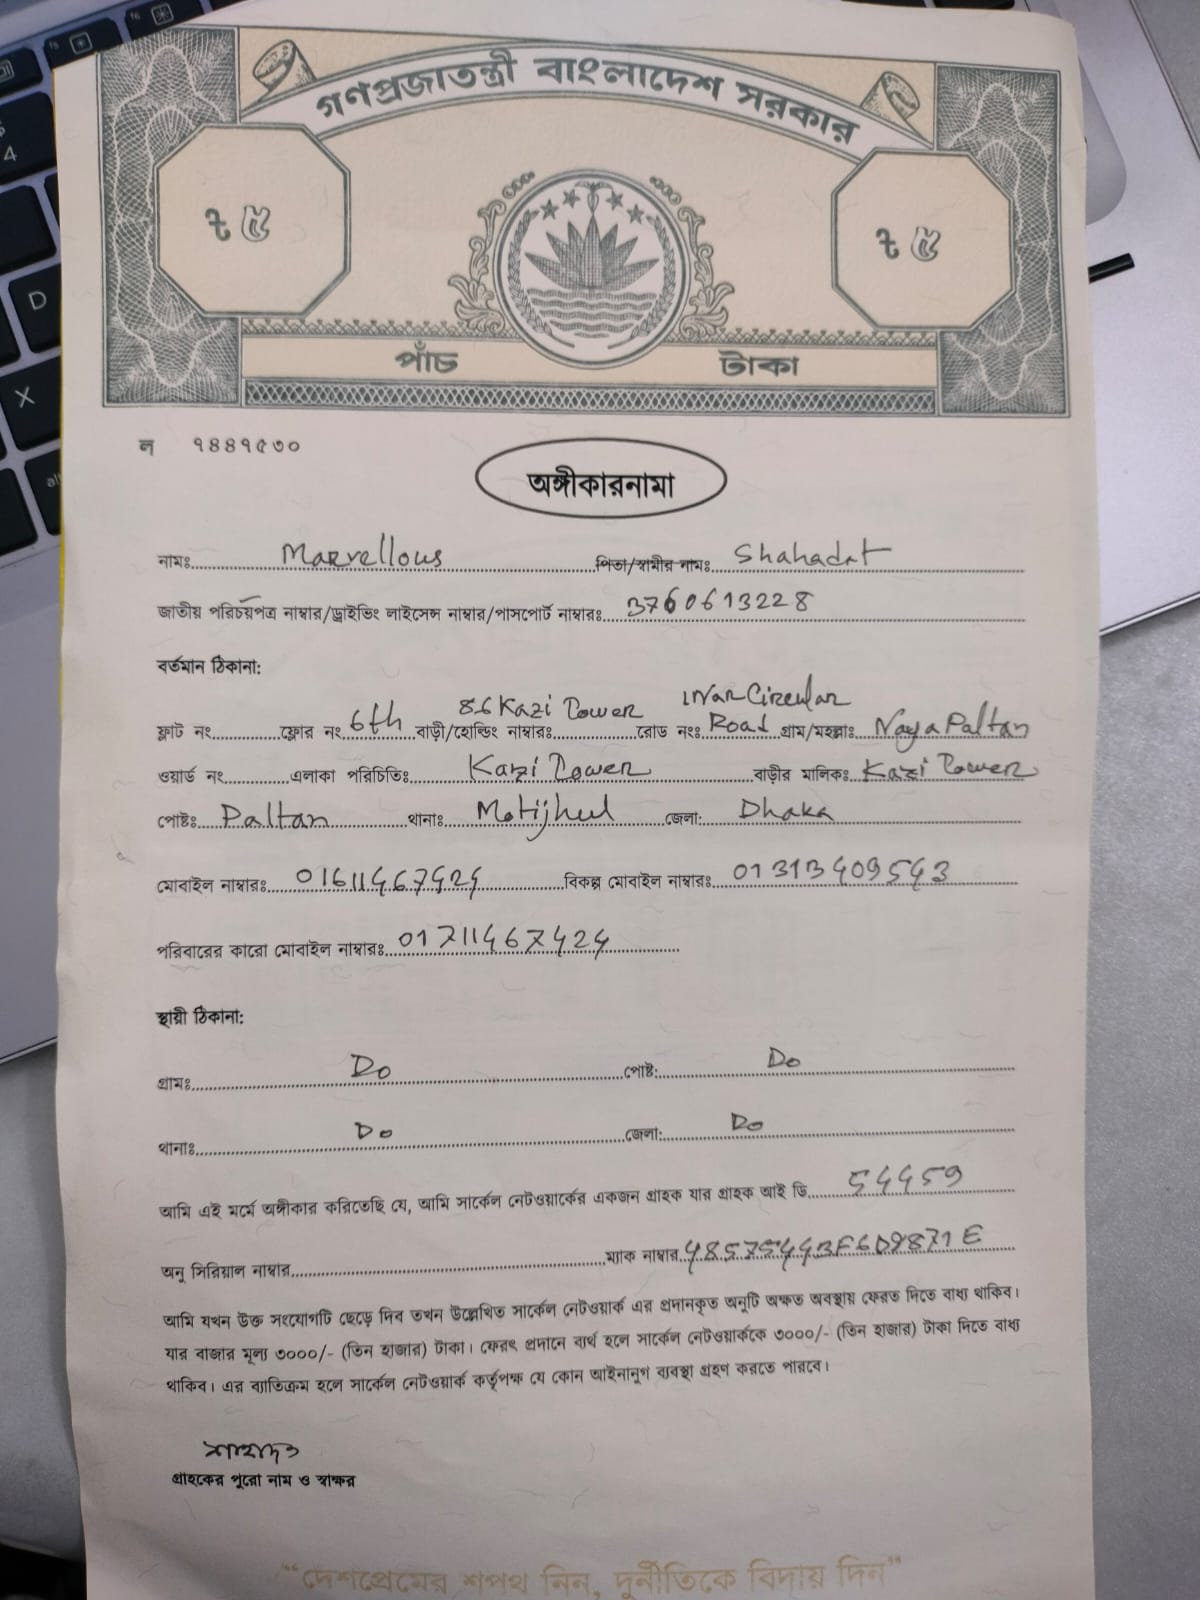 গণপ্রজাতন্ত্রী বাংলাদেশ সরকার
৳ ৫ ৳ ৫
পাঁচ টাকা
ল ৭৪৪৭৫৩০
অঙ্গীকারনামা
নামঃ Marvellous পিতা/স্বামীর নামঃ Shahadat
জাতীয় পরিচয়পত্র নাম্বার/ড্রাইভিং লাইসেন্স নাম্বার/পাসপোর্ট নাম্বারঃ 3760613228
বর্তমান ঠিকানা:
ফ্লাট নং ফ্লোর নং 6th বাড়ী/হোল্ডিং নাম্বারঃ 86 Kazi Tower রোড নংঃ Inner Circular Road গ্রাম/মহল্লাঃ Naya Paltan
ওয়ার্ড নং এলাকা পরিচিতিঃ Kazi Tower বাড়ীর মালিকঃ Kazi Tower
পোষ্টঃ Paltan থানাঃ Motijheel জেলা: Dhaka
মোবাইল নাম্বারঃ 01611467424 বিকল্প মোবাইল নাম্বারঃ 01313409543
পরিবারের কারো মোবাইল নাম্বারঃ 01711467424
স্থায়ী ঠিকানা:
গ্রামঃ Do পোষ্ট: Do
থানাঃ Do জেলা: Do
আমি এই মর্মে অঙ্গীকার করিতেছি যে, আমি সার্কেল নেটওয়ার্কের একজন গ্রাহক যার গ্রাহক আই ডি 54459
অনু সিরিয়াল নাম্বার ম্যাক নাম্বার
আমি যখন উক্ত সংযোগটি ছেড়ে দিব তখন উল্লেখিত সার্কেল নেটওয়ার্ক এর প্রদানকৃত অনুটি অক্ষত অবস্থায় ফেরত দিতে বাধ্য থাকিব।
যার বাজার মূল্য ৩০০০/- (তিন হাজার) টাকা। ফেরৎ প্রদানে ব্যর্থ হলে সার্কেল নেটওয়ার্ককে ৩০০০/- (তিন হাজার) টাকা দিতে বাধ্য
থাকিব। এর ব্যাতিক্রম হলে সার্কেল নেটওয়ার্ক কর্তৃপক্ষ যে কোন আইনানুগ ব্যবস্থা গ্রহণ করতে পারবে।
শাহাদত
গ্রাহকের পুরো নাম ও স্বাক্ষর
“দেশপ্রেমের শপথ নিন, দুর্নীতিকে বিদায় দিন”